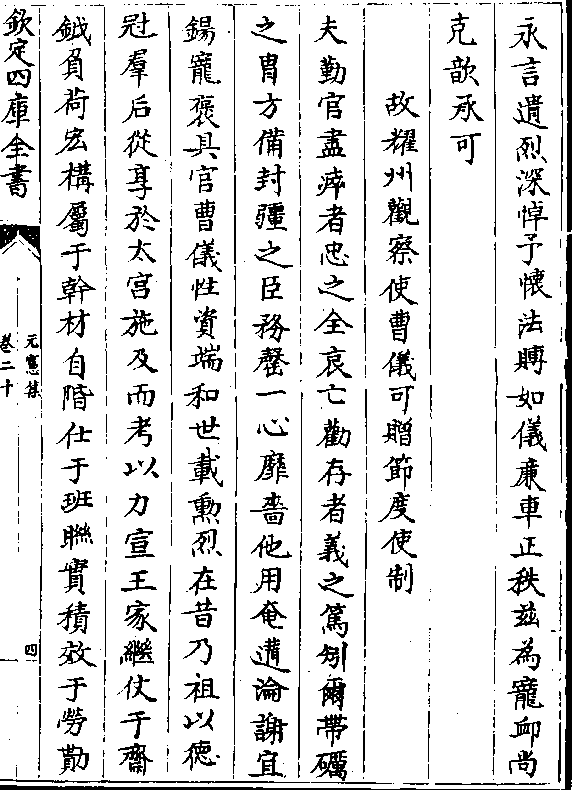 永言遺烈深悼予懷法賻如儀廉車正秩兹為寵卹尚
克歆承可
故耀州觀察使曹儀可贈節度使制
夫勤官盡瘁者忠之全哀亡勸存者義之篤矧爾帶礪
之胄方備封疆之臣務罄一心靡嗇他用奄遘淪謝宜
錫寵褒具官曹儀性資端和世載勲烈在昔乃祖以德
冠羣后從享於太宫施及而考以力宣王家繼仗于齋
鉞負荷宏構屬于幹材自階仕于班聯實積效于勞勩
欽定四庫全書
元憲集
卷二十
四